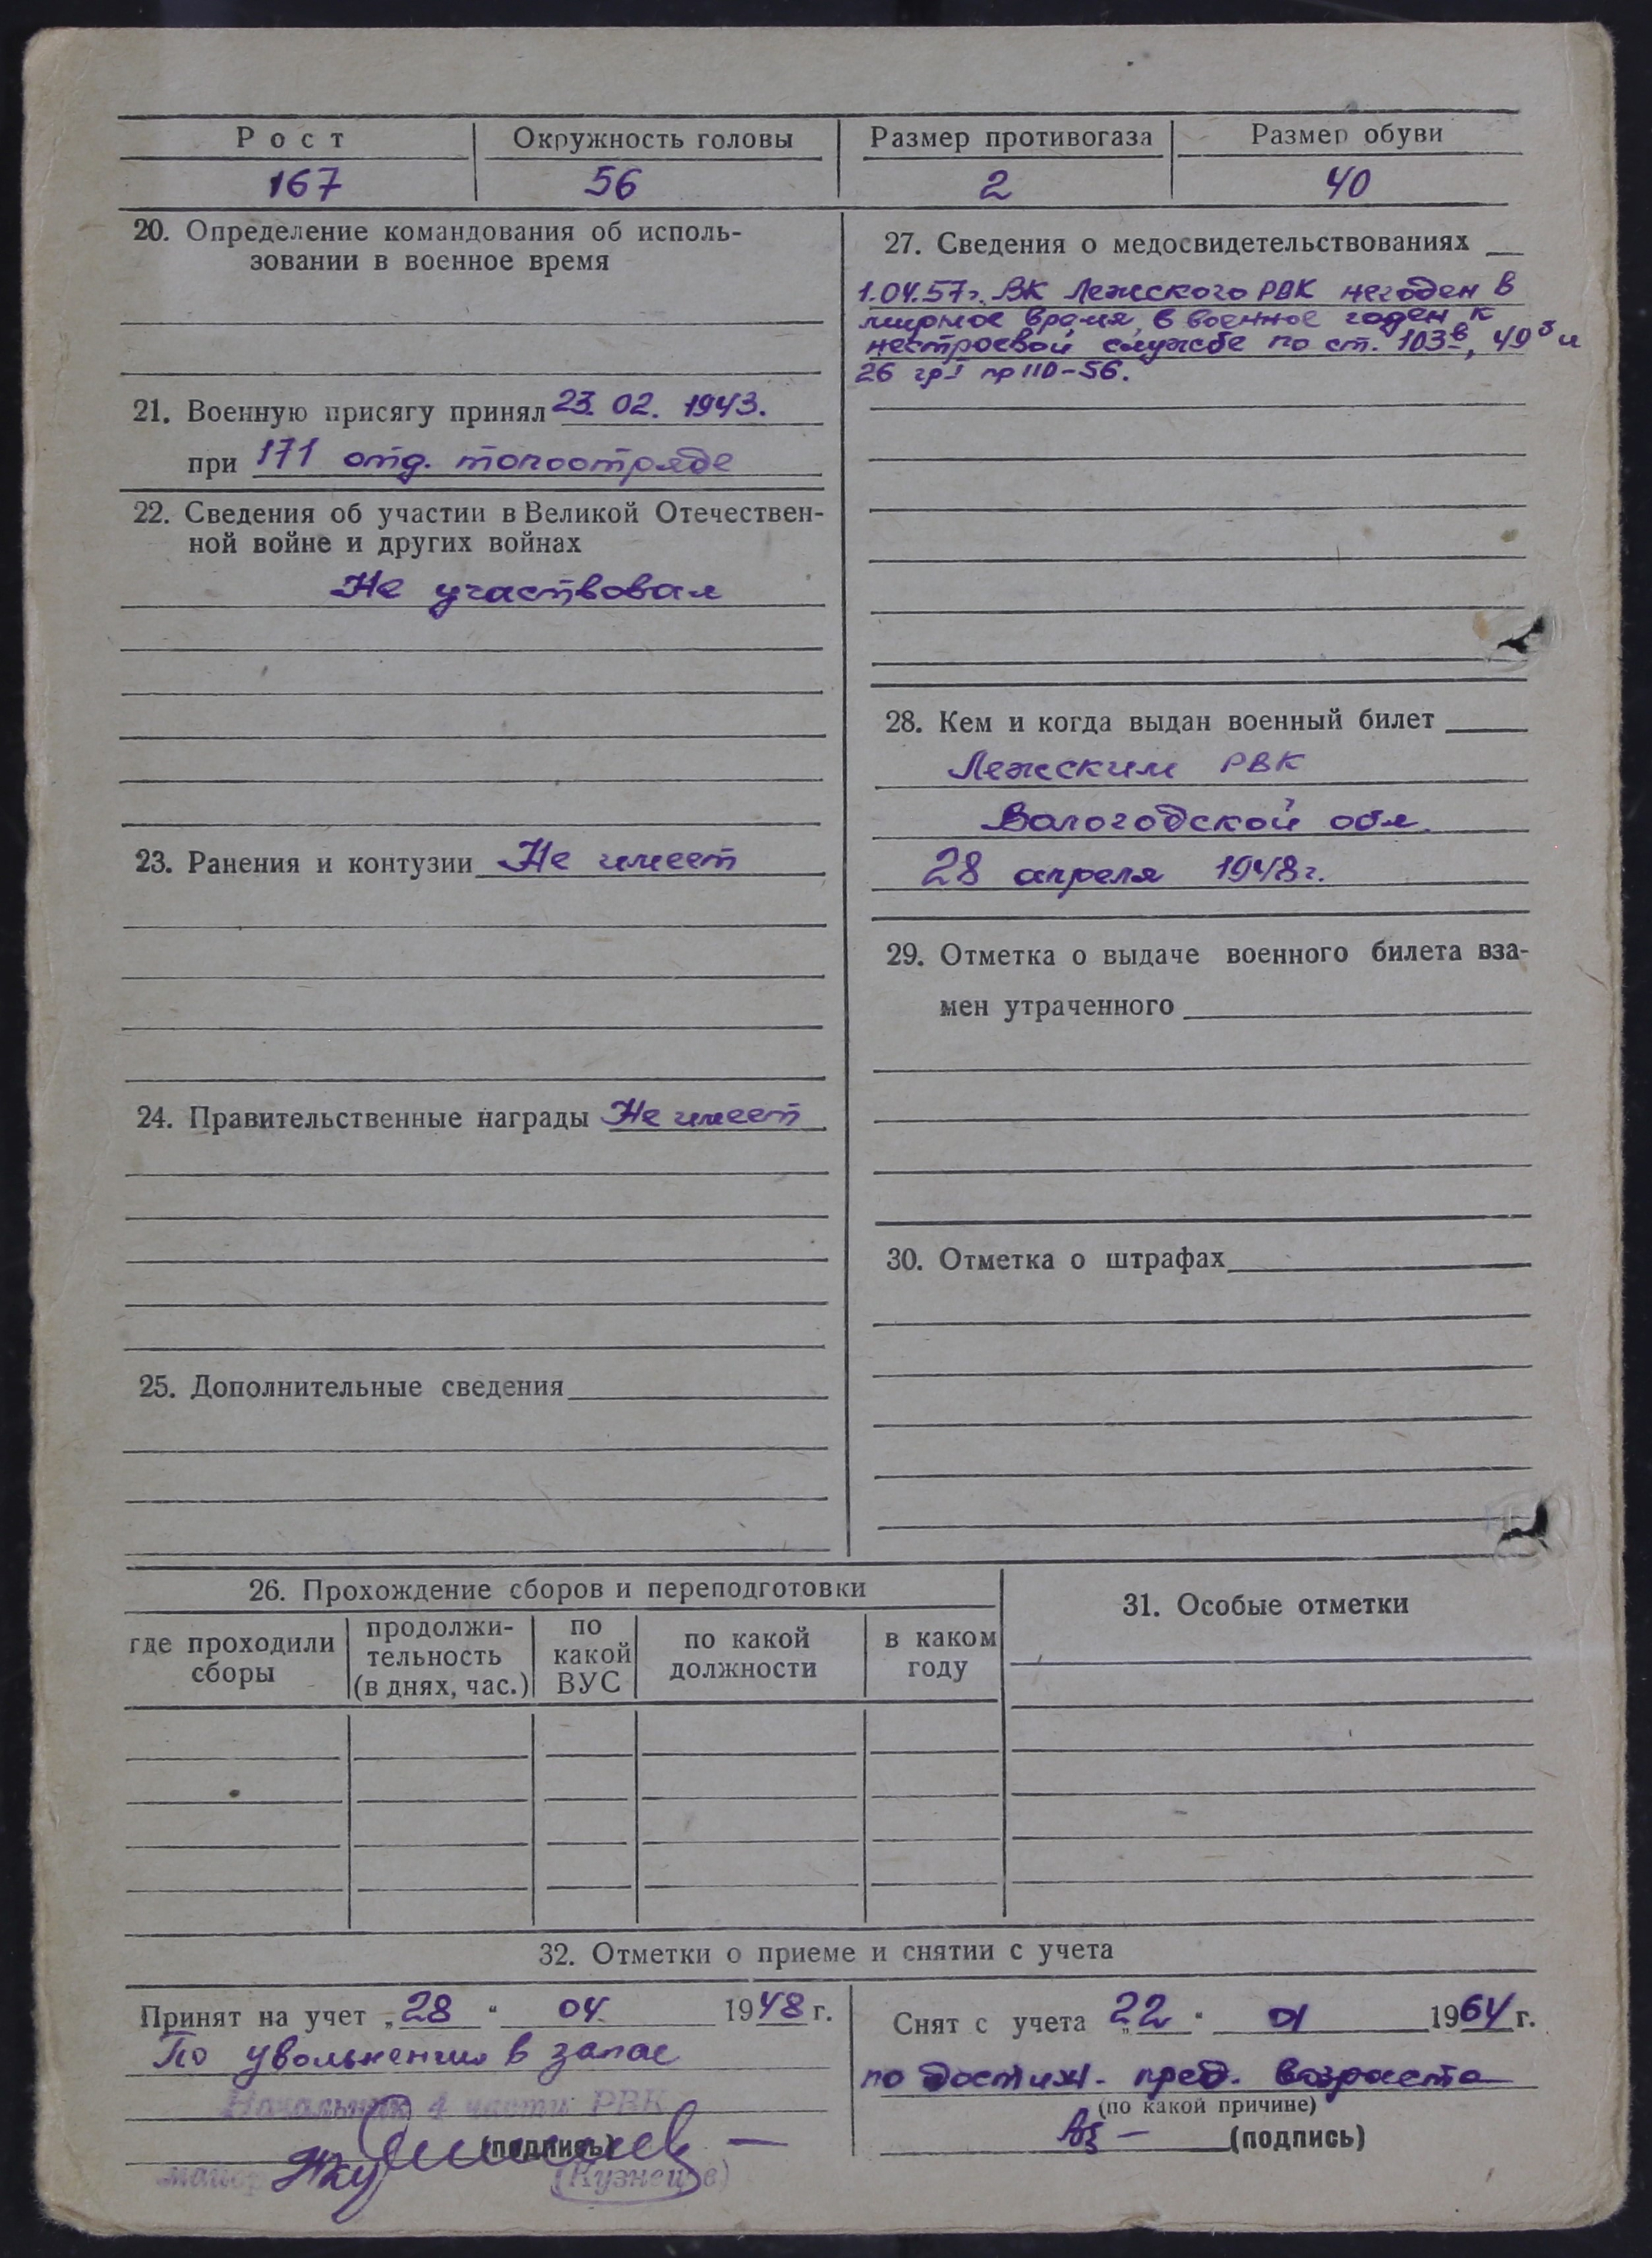 Рост
Окружность головы
Размер противогаза
Размер обуви
167
56
2
40
20. Определение командования об исполь-
зовании в военное время
21. Военную присягу принял 23. 02. 1943.
при 171 отд. топоотряде
22. Сведения об участии в Великой Отечествен-
ной войне и других войнах
Не участвовал
23. Ранения и контузии Не имеет
24. Правительственные награды Не имеет
25. Дополнительные сведения
27. Сведения о медосвидетельствованиях
1.04.57г. ВК Лежского РВК негоден в
мирное время, в военное годен к
нестроевой службе по ст. 103в, 49б и
26 гр I пр 110-56.
28. Кем и когда выдан военный билет
Лежским РВК
Вологодской обл.
28 апреля 1948г.
29. Отметка о выдаче военного билета вза-
мен утраченного
30. Отметка о штрафах
26. Прохождение сборов и переподготовки
где проходили
сборы
продолжи-
тельность
(в днях, час.)
по
какой
ВУС
по какой
должности
в каком
году
31. Особые отметки
32. Отметки о приеме и снятии с учета
Принят на учет „28“ 04. 1948 г.
По увольнении в запас
Начальник 4 части РВК
(подпись)
майор
(Кузнецов)
Снят с учета „22“ 01 1964 г.
по достиж. пред. возраста
(по какой причине)
(подпись)